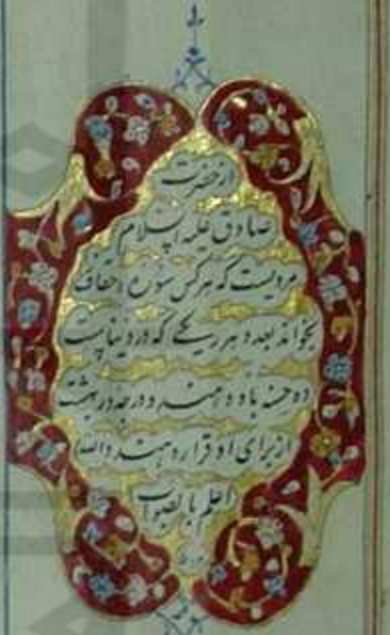 از حضرت
صادق علیه السلام
مرویست که هر کس سوره احقاف
بخواند بعدد هر ریکی که در دنیاست
ده حسنه باو دهند و ده درجه در بهشت
از برای او قرار دهند والله
اعلم بالصواب